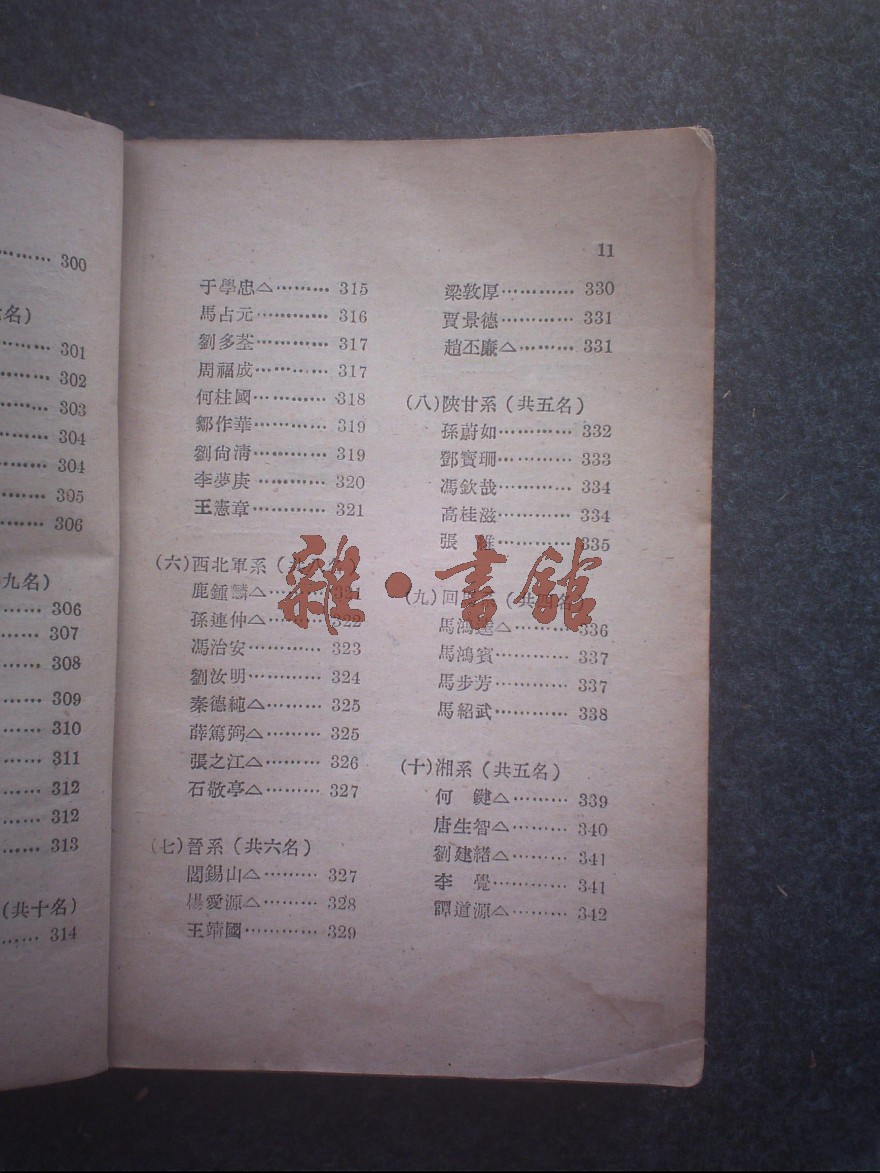 300
名）
301
302
303
304
304
305
306
九名）
306
307
308
309
310
311
312
312
313
（共十名）
314
11
于學忠△……… 315
馬占元………… 316
劉多荃………… 317
周福成………… 317
何桂國………… 318
鄒作華………… 319
劉尙清………… 319
李夢庚………… 320
王憲章………… 321
（六）西北軍系（共八名）
鹿鍾麟△……… 321
孫連仲△……… 322
馮治安………… 323
劉汝明………… 324
秦德純△……… 325
薛篤弼△……… 325
張之江△……… 326
石敬亭△……… 327
（七）晉系（共六名）
閻錫山△……… 327
楊愛源△……… 328
王靖國………… 329
梁敦厚………… 330
賈景德………… 331
趙丕廉△……… 331
（八）陝甘系（共五名）
孫蔚如………… 332
鄧寳珊………… 333
馮欽哉………… 334
高桂滋………… 334
張 335
（九）回 （共四名）
馬鴻逵△……… 336
馬鴻賓………… 337
馬步芳………… 337
馬紹武………… 338
（十）湘系（共五名）
何　鍵△……… 339
唐生智△……… 340
劉建緒△……… 341
李　覺………… 341
譚道源△……… 342
雜·書館